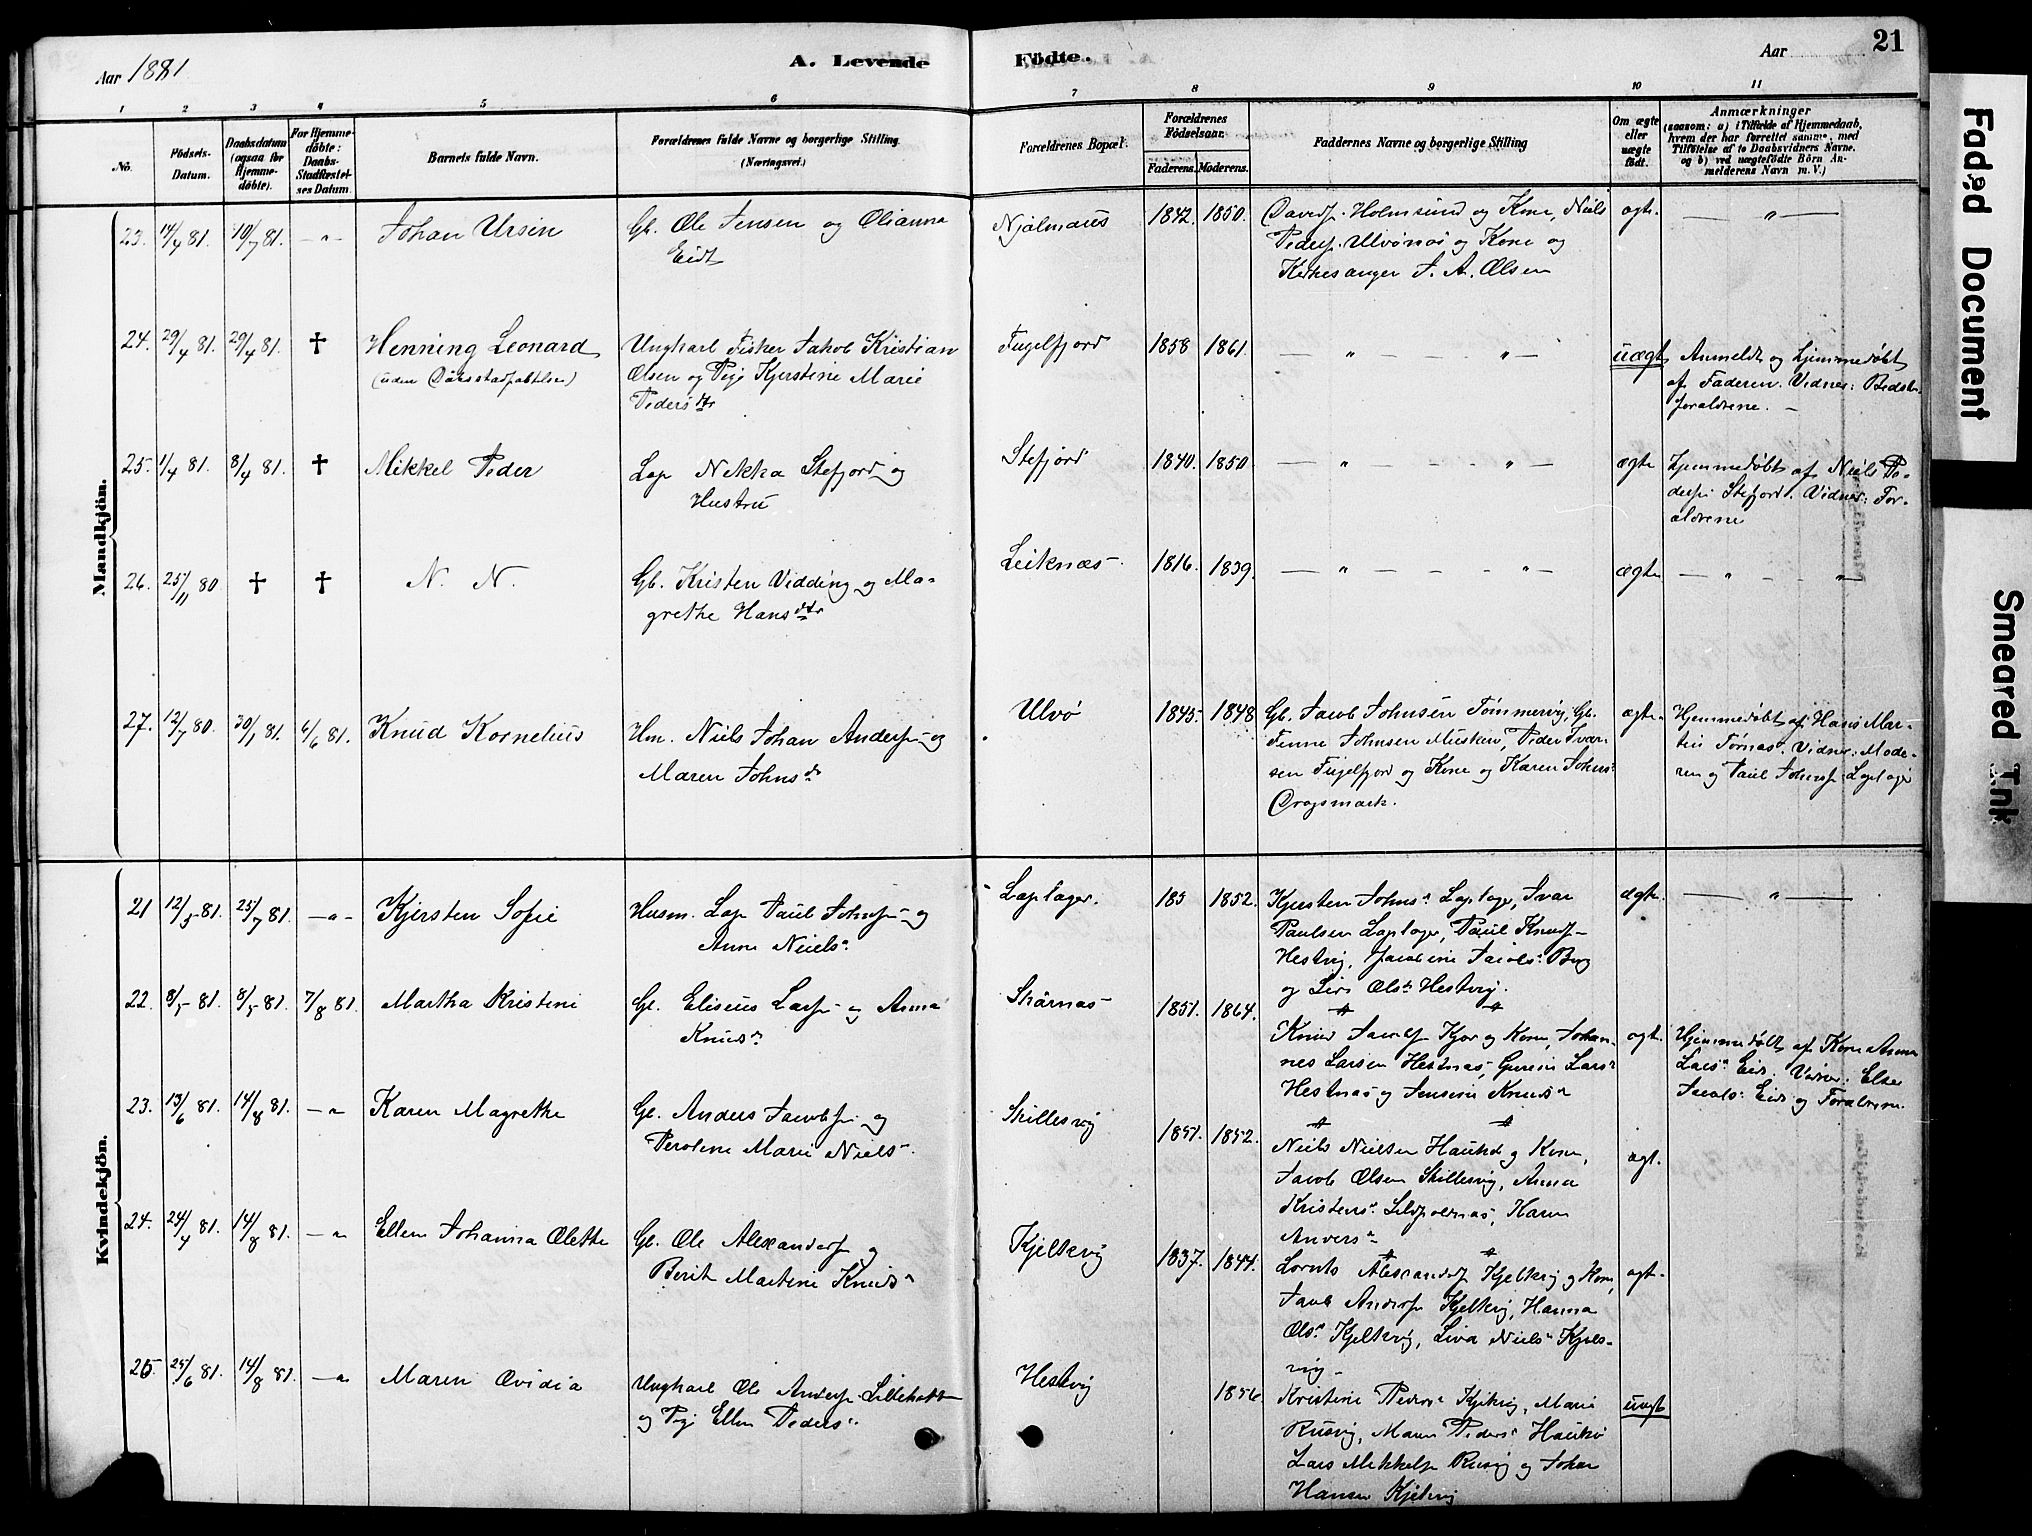 Aar 1881
A. Levende
Födte.
Aar
21
1 2 3 4 5 6 7 8 9 10 11
No.
Födsels-
Datum.
Daabsdatum
(ogsaa for
Hjemme-
döbte).
For Hjemme-
döbte:
Daabs-
Stadfæstel-
ses Datum.
Barnets fulde Navn.
Forældrenes fulde Navne og borgerlige Stilling
(Næringsvei.)
Forældrenes Bopæl.
Forældrenes
Födselsaar.
Faderens. Moderens.
Faddernes Navne og borgerlige Stilling
Om ægte
eller
uægte
født.
Anmærkninger
(saasom: a) i Tilfælde af Hjemmedaab,
hvem der har forrettet samme, med
Tilföielse af to Daabsvidners Navne.
og b) ved uægtefödte Börn An-
melderens Navn m. V.)
Mandkjön.
23. 14/4 81. 10/7 81. -„- Johan Ursin
Gb. Ole Jensen og Olianna
Eidt
Njalmaus 1842. 1850.
Davids. Holmsund og Kone, Niels
Peders. Ulvönæs og Kone og
Kirkesanger J. A. Olsen
ægte. — „ —
24. 29/4 81. 29/4 81. † Henning Leonard
(uden Daabsstadfæstelse)
Ungkarl Fisker Jakob Kristian
Olsen og Pige Kjerstine Marie
Peders dtr
Fugelfjord 1858 1861. — „ — „ —
uægte
Anmeldt og hjemmedøbt
af Faderen. Vidner: Bedste-
forældrene. —
25. 1/4 81. 8/4 81. † Mikkel Peder
Lap Nekka Stefjord og
Hustru
Stefjord 1840. 1850. — „ — „ —
ægte
Hjemmedøbt af Niels Pe-
ders. Stefjord. Vidner: For-
ældrene
26. 25/11 80 † † N. N.
Gb. Kristen Vidding og Ma-
grethe Hans dtr
Leiknæs 1816. 1839. — „ — „ —
ægte — „ — „
27. 12/7 80. 30/1 81. 6/6 81. Knud Kornelius
Hm. Niels Johan Anders. og
Maren Johns d.
Ulvö 1845. 1848
Gb. Jacob Johnsen Tömmervig, Gb.
Finne Johnsen Musken, Peder Ivar-
sen Fugelfjord og Kone og Karen Johns:
Dragsmark.
ægte.
Hjemmedøbt af Hans Mar-
tin Fornæs. Vidner: Mode-
ren og Paul Johns. Laplager
Kvindekjön.
21 12/5 81. 25/7 81. -„- Kjersten Sofie
Husm. Lap Paul Johns. og
Anne Niels:
Laplager. 185 1852.
Kjersten Johns: Laplager, Ivar
Paulsen Laplager, Paul Knuds.
Hestvig, Jacobine Jacobs: Berg
og Ols: Hestvig.
ægte. — „ —
22. 8/5 81. 8/5 81. 7/8 81. Martha Kristine
Gb. Eliseus Lars. og Anna
Knuds:
Skarnæs 1851. 1864.
Knud Jacobs. Kjær og Kone, Johan-
nes Larsen Hestnæs, Lars:
Hestnæs og Jensine Knuds:
ægte.
Hjemmedøbt af Kone Anna
Lars: Eid. Vidner: Else
Jacobs: Eid og Forældrene.
23. 13/6 81. 14/8 81. -„ Karen Magrethe
Gb. Anders Jacobs. og
Peroline Marie Niels.
Skillesvig 1851. 1852.
Niels Nielsen Haukö og Kone,
Jacob Olsen Skillesvig, Anna
Kristens: Karen
Anders:
ægt.
24. 24/4 81. 14/8 81. -„ Ellen Johanna Olette
Gb. Ole Alexanders. og
Berit Martine Knuds:
Kjeltvig 1837. 1844.
Lornts Alexanders. Kjeltvig og Kone,
Jacob Anders. Kjeltvig, Hanna
Ols: Kjeltvig, Liva Niels: Kjels-
vig
ægt.
25. 25/6 81. 14/8 81. -„ Maren Ovidia
Ungkarl Ole Anders.
og Pige Ellen Peders:
Hestvig 1856.
Kristine Peders: Kjelvig, Marie
Rusvig, Maren Peders: Haukö
Lars Mikkels. Rusvig og Johan
Hansen Kjelvig
uægte
Faded Document
Smeared Ink